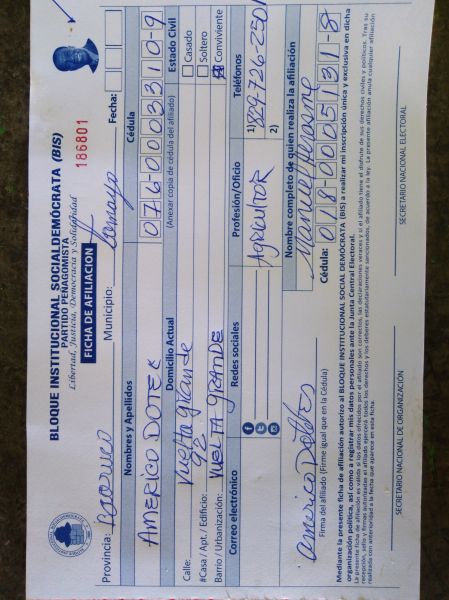 BLOQUE INSTITUCIONAL SOCIALDEMÓCRATA (BIS)
PARTIDO PEÑAGOMISTA
Libertad, Justicia, Democracia y Solidaridad
FICHA DE AFILIACION
186801
Provincia: Baoruco Municipio: Tamayo Fecha:
Nombres y Apellidos Cédula
AMERICO DOTEL 076-0003310-9
(Anexar copia de cédula del afiliado)
Domicilio Actual Estado Civil
Calle: Vuelta grande Casado
#Casa / Apt. / Edificio: 92 Soltero
Barrio / Urbanización: VUELTA GRANDE Conviviente
Correo electrónico Redes sociales Profesión/Oficio Teléfonos
Agricultor 1) 829-726-2501
2)
Nombre completo de quien realiza la afiliación
Manuel
Firma del afiliado (Firme igual que en la Cédula) Cédula: 018-0005131-8
Mediante la presente ficha de afiliación autorizo al BLOQUE INSTITUCIONAL SOCIAL DEMÓCRATA (BIS) a realizar mi inscripción única y exclusiva en dicha
organización política, así como a registrar mis datos personales ante la Junta Central Electoral.
La presente ficha de afiliación es válida si los datos ofrecidos por el afiliado son correctos, las declaraciones veraces y si el afiliado tiene el disfrute de sus derechos civiles y políticos. Tras su
recepción, sello y firmas autorizadas el afiliado ejercerá todos los derechos y los deberes estatutariamente sancionados, de acuerdo a la ley. La presente afiliación anula cualquier afiliación
realizada con anterioridad a la fecha que aparece en esta ficha.
SECRETARIO NACIONAL DE ORGANIZACIÓN SECRETARIO NACIONAL ELECTORAL